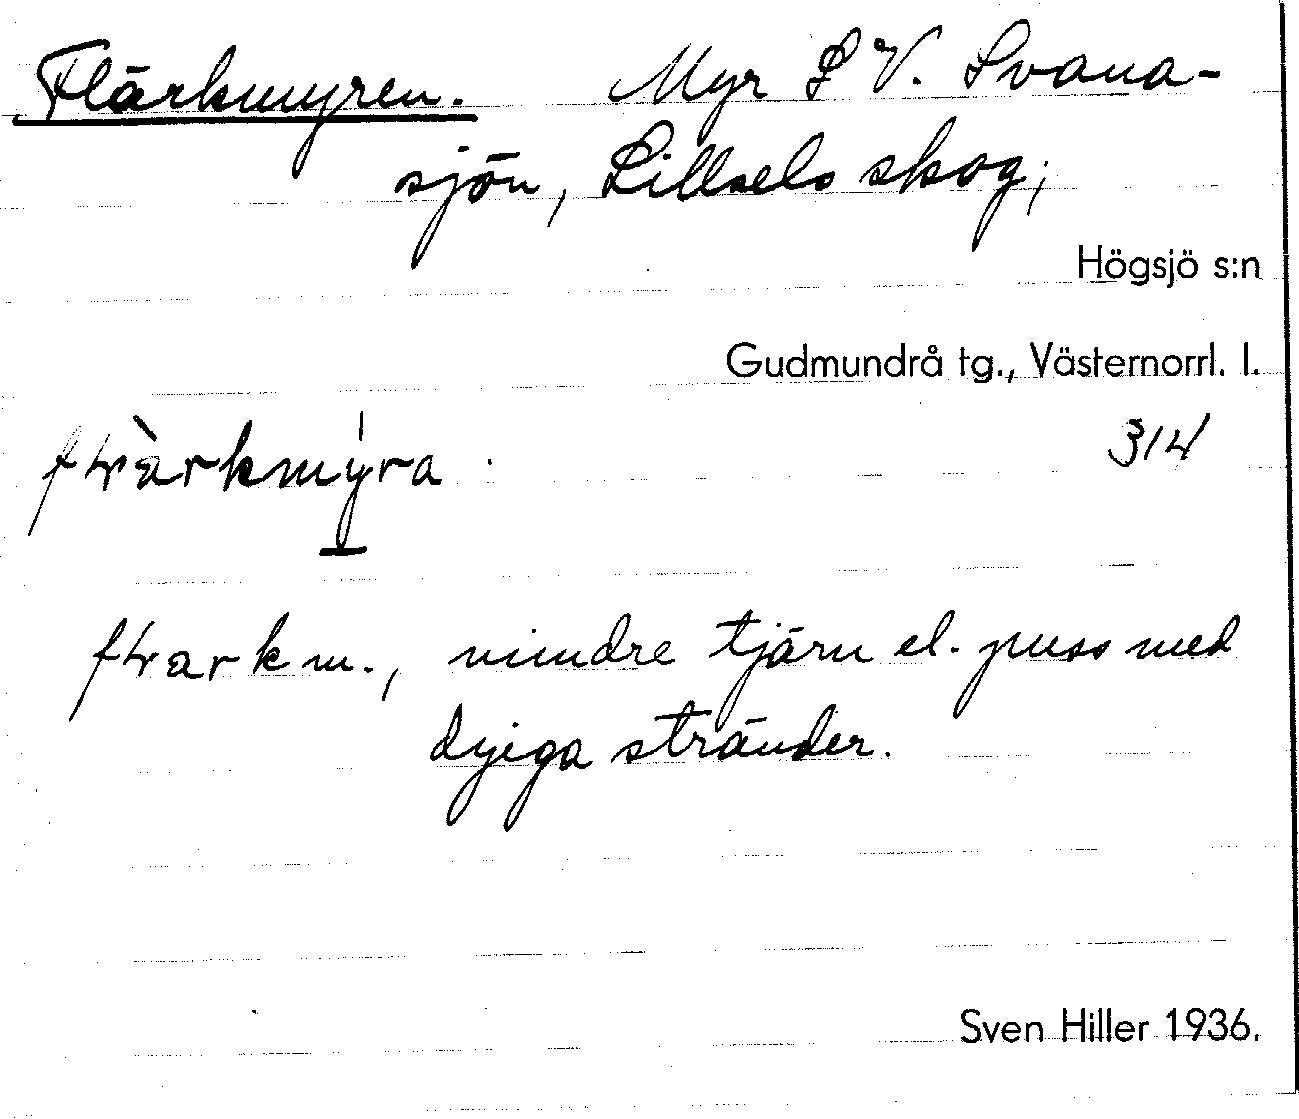 Flärkmyren. Myr S V. Svana-
sjön, Lillsels skog;
Högsjö s:n
Gudmundrå tg., Västernorrl. l.
314
m., mindre tjärn el. puss med
dyiga stränder.
Sven Hiller 1936.